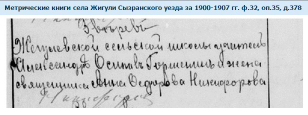 Метрические книги села Жигули Сызранского уезда за 1900-1907 гг. ф.32, оп.35, д.378
Жигулевской сельской школы учитель
Александръ Осиповъ и жена
священника Анна Федорова Никифорова